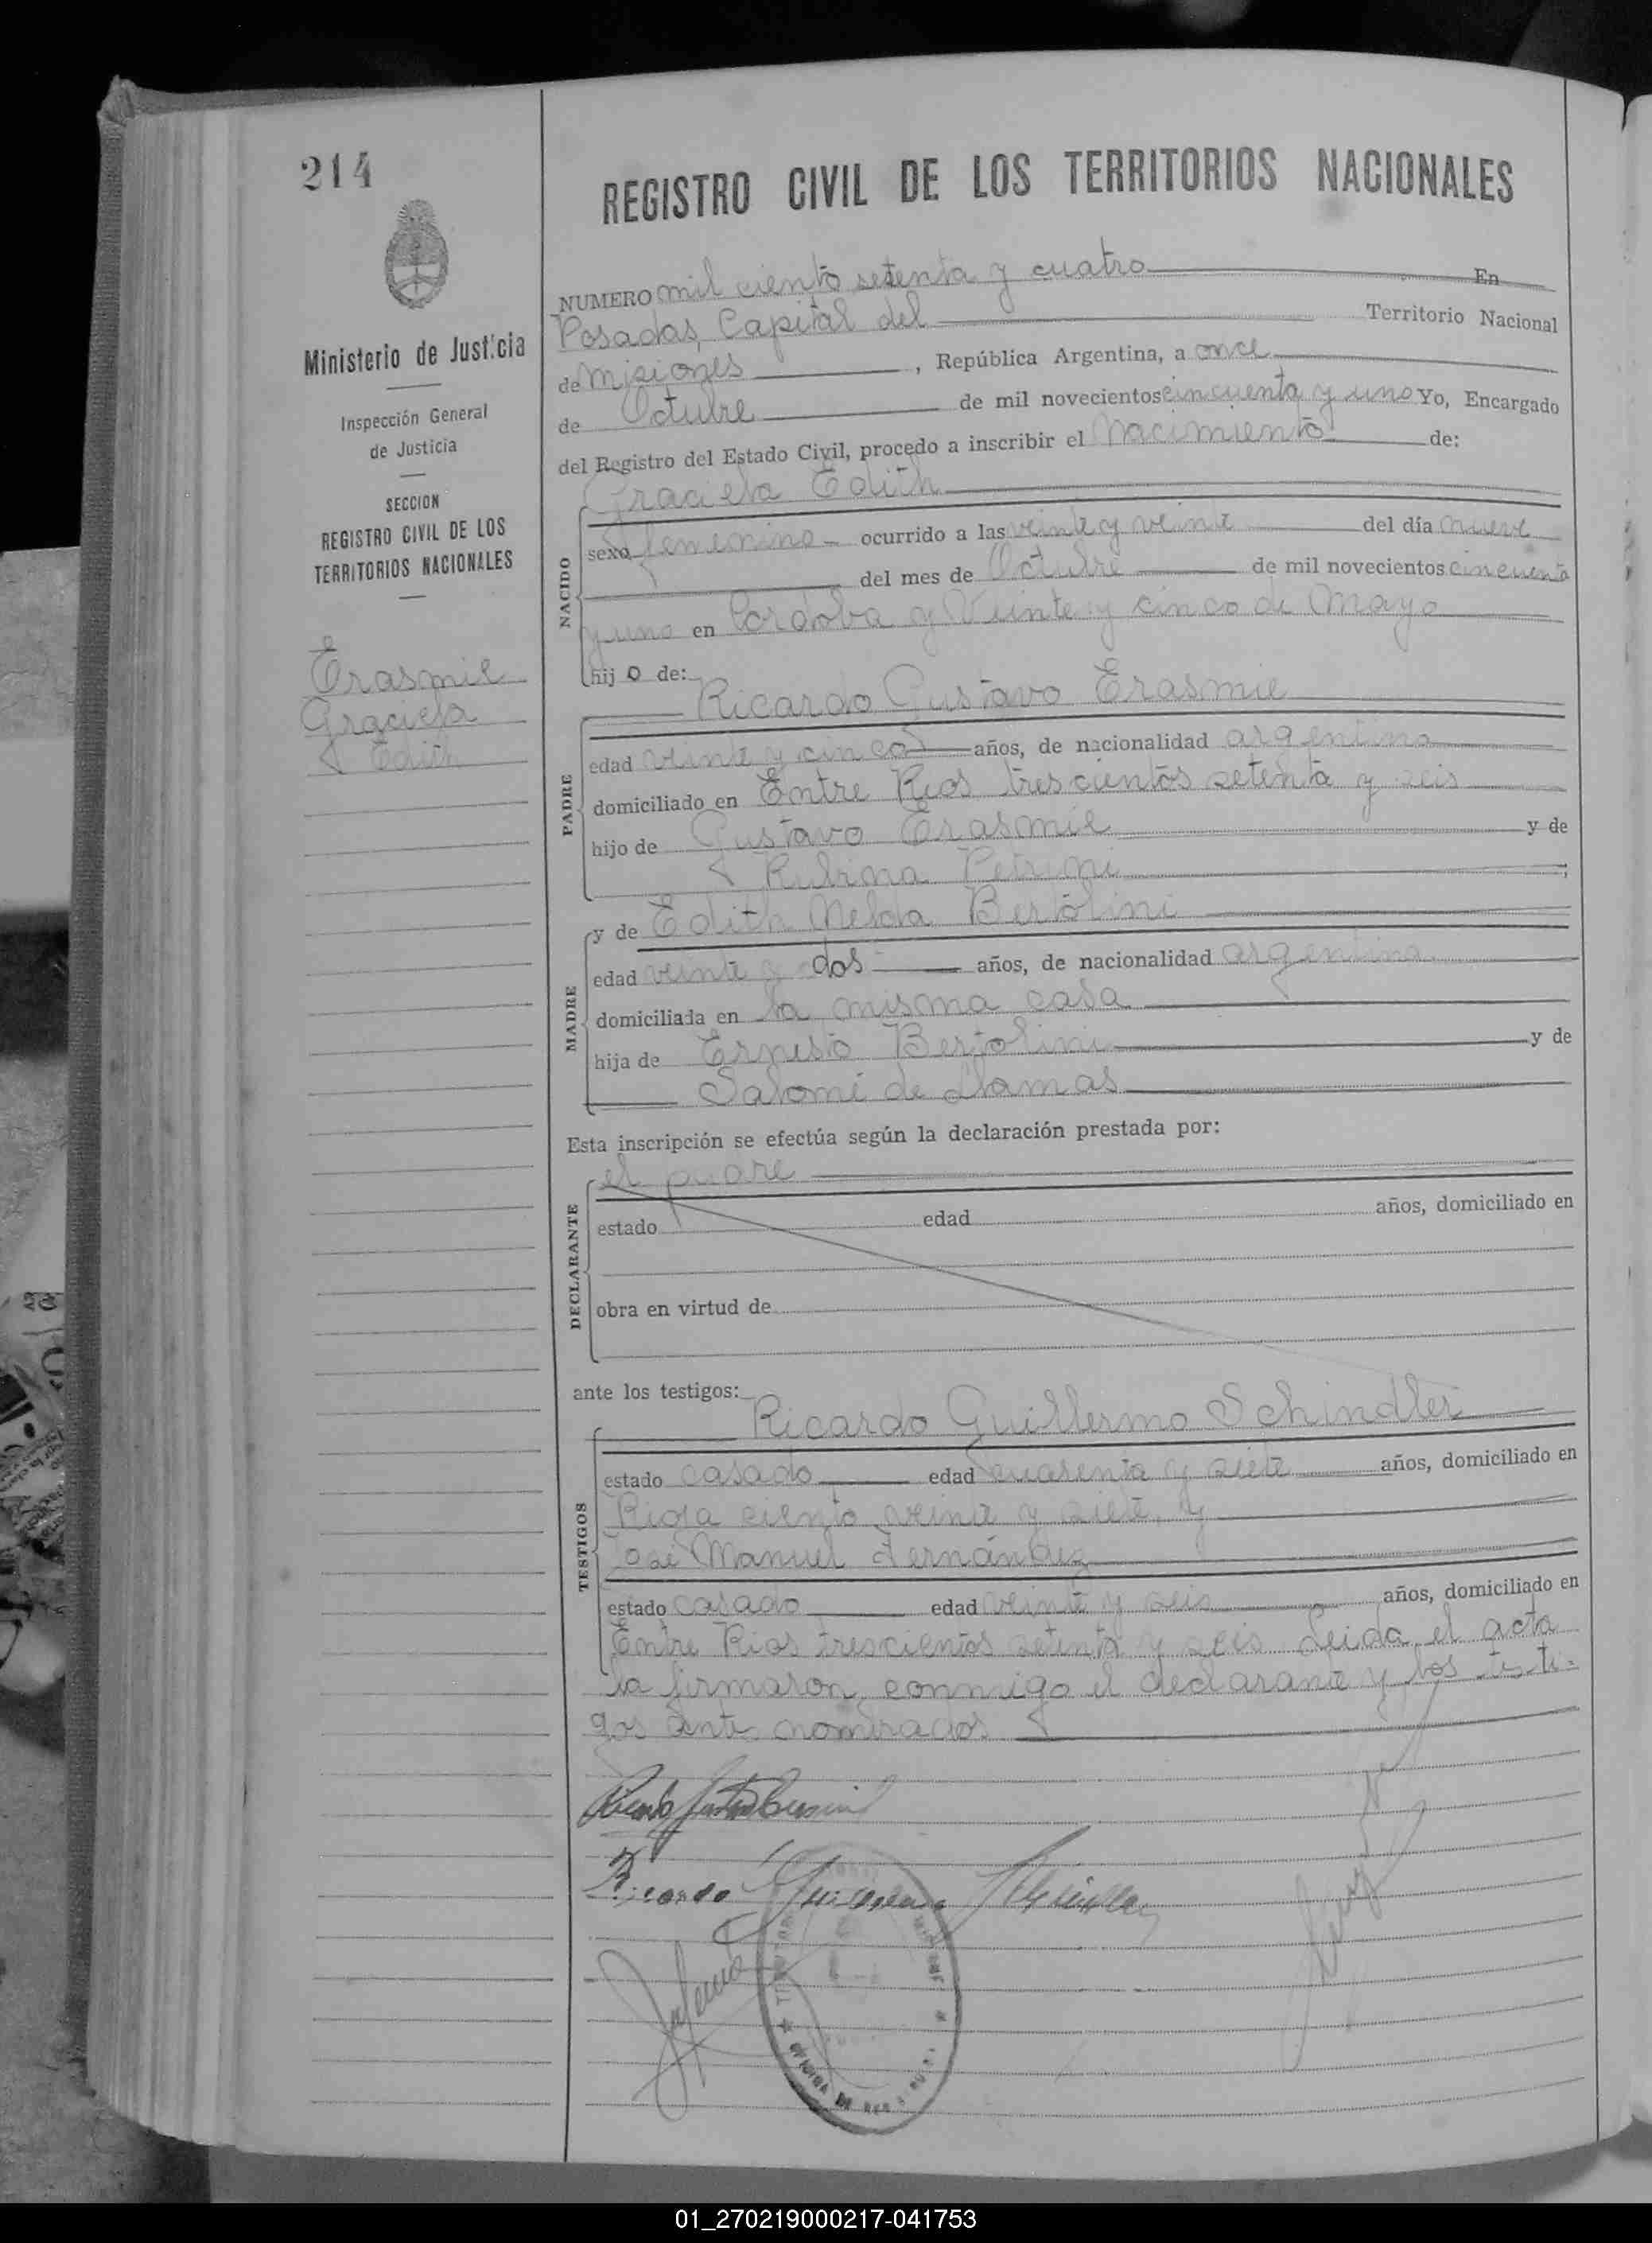 214
REGISTRO CIVIL DE LOS TERRITORIOS NACIONALES
Ministerio de Justicia
Inspección General
de Justicia
SECCION
REGISTRO CIVIL DE LOS
TERRITORIOS NACIONALES
Erasmie
Graciela
Edith
NUMERO mil ciento setenta y cuatro En
Posadas, Capital del Territorio Nacional
de Misiones, República Argentina, a once
de Octubre de mil novecientos cincuenta y uno Yo, Encargado
del Registro del Estado Civil, procedo a inscribir el nacimiento de:
Graciela Edith
NACIDO
sexo femenino ocurrido a las veinte y veinte del día nueve
del mes de Octubre de mil novecientos cincuenta
y uno en Cordoba y Veinte y cinco de Mayo
hij o de:
Ricardo Gustavo Erasmie
PADRE
edad veinte y cinco años, de nacionalidad argentina
domiciliado en Entre Rios trescientos setenta y seis
hijo de Gustavo Erasmie y de
Rubina Petrini;
MADRE
y de Edith Nelda Bertolini
edad veinte y dos años, de nacionalidad argentina
domiciliada en la misma casa
hija de Ernesto Bertolini y de
Salomé de Llamas
Esta inscripción se efectúa según la declaración prestada por:
el padre
DECLARANTE
estado edad años, domiciliado en
obra en virtud de
ante los testigos:
Ricardo Guillermo Schindler
TESTIGOS
estado casado edad cuarenta y siete años, domiciliado en
Rioja ciento veinte y siete, y
José Manuel Fernández
estado casado edad veinte y seis años, domiciliado en
Entre Rios trescientos setenta y seis Leida el acta
la firmaron conmigo el declarante y los testi-
gos antes nombrados
Ricardo Guillermo Schindler
OFICINA DE
01_270219000217-041753